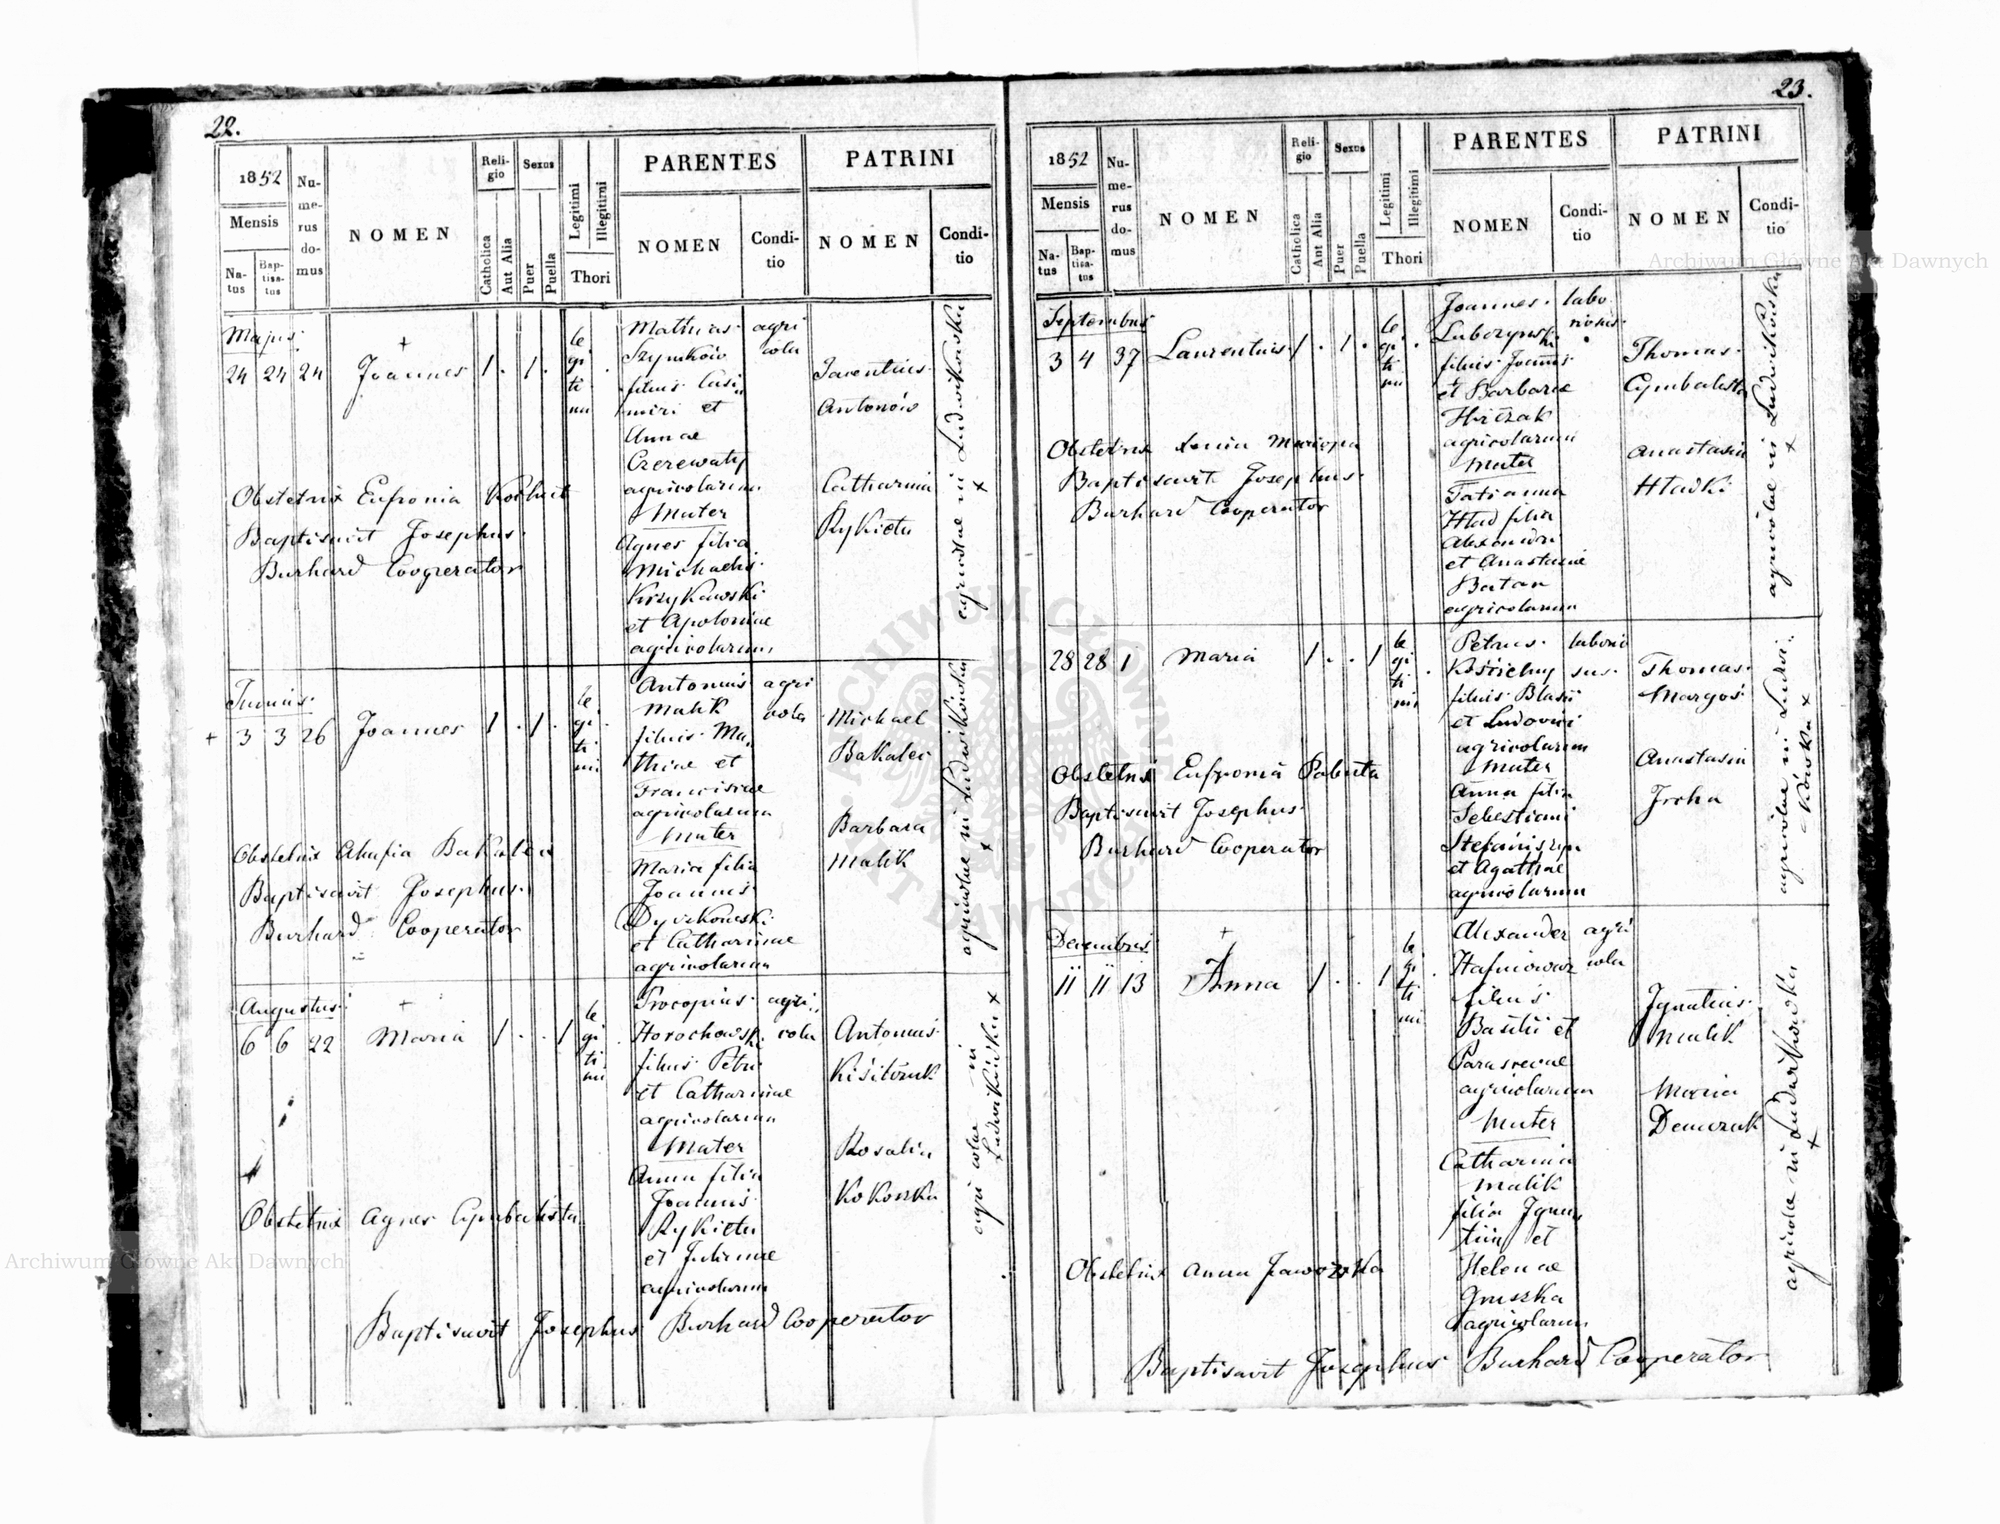 22.
1852
Mensis
Natus
Baptisatus
Numerus domus
NOMEN
Religio
Catholica
Aut Alia
Sexus
Puer
Puella
Legitimi
Illegitimi
Thori
PARENTES
NOMEN
Conditio
PATRINI
NOMEN
Conditio
Majus
24 24 24 Joannes 1 . 1 .
legitimi
Mathias agri
Szymków cola
filius Casi
miri et
Annae
Czerewaty
agricolarum
Mater
Agnes filia
Michaelis
Krzykowski
et Apoloniae
agricolarum
Antonów
Catharina
Rykieta
agricolae in Ludwikówka
Obstetrix Eufronia
Baptisavit Josephus
Burhard Cooperator
Junius
3 3 26 Joannes 1 . 1 .
legitimi
Antonius agri
Malik cola
filius Ma
thiae et
Franciscae
agricolarum
Mater
Maria filia
Joannis
et Catharinae
agricolarum
Michael
Bakalec
Barbara
Malik
agricolae in Ludwikówka
Obstetrix
Baptisavit Josephus
Burhard Cooperator
Augustus
6 6 22 Maria 1 . . 1
legitimi
Procopius agri
Horochowski cola
filius Petri
et Catharinae
agricolarum
Mater
Anna filia
Joannis
Rykieta
et Julianae
agricolarum
Antonius
Rosalia
Kokoszka
agricolae in
Ludwikówka
Obstetrix Agnes Cymbalista
Baptisavit Josephus Burhard Cooperator
23.
1852
Mensis
Natus
Baptisatus
Numerus domus
NOMEN
Religio
Catholica
Aut Alia
Sexus
Puer
Puella
Legitimi
Illegitimi
Thori
PARENTES
NOMEN
Conditio
PATRINI
NOMEN
Conditio
Septembris
3 4 37 Laurentius 1 . 1 .
legitimi
Joannes labo
riosus
filius Joannis
et Barbarae
Hirczak
agricolarum
Mater
Tatianna
Hlad filia
Alexandri
et Anastasiae
Batan
agricolarum
Thomas
Cymbalista
Anastasia
Hladki
agricolae in Ludwikówka
Obstetrix Xenia
Baptisavit Josephus
Burhard Cooperator
28 28 1 Maria 1 . . 1
legitimi
Petrus laborio
sus
filius Blasii
et Ludovici
agricolarum
Mater
Anna filia
Sebestiani
et Agathae
agricolarum
Thomas
Margoś
Anastasia
Jroha
agricolae in Ludwi
kówka
Obstetrix Eufronia
Baptisavit Josephus
Burhard Cooperator
Decembris
11 11 13 Anna 1 . . 1
legitimi
Alexander agri
cola
filius
Basilii et
Parascevae
agricolarum
Mater
Catharina
Malik
filia Igna
tii et
Helenae
Gruszka
agricolarum
Ignatius
Malik
Maria
Demczuk
agricolae in Ludwikówka
Obstetrix Anna
Baptisavit Josephus Burhard Cooperator
Archiwum Główne Akt Dawnych
Archiwum Główne Akt Dawnych
ARCHIWUM GŁÓWNE AKT DAWNYCH